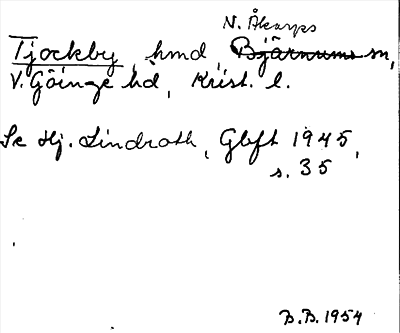 N. Åkarps
Tjockby, hmd, Bjärnums sn,
V. Göinge hd, Krist. l.
Se Hj. Lindroth, Gbft 1945,
s. 35
B.B. 1954